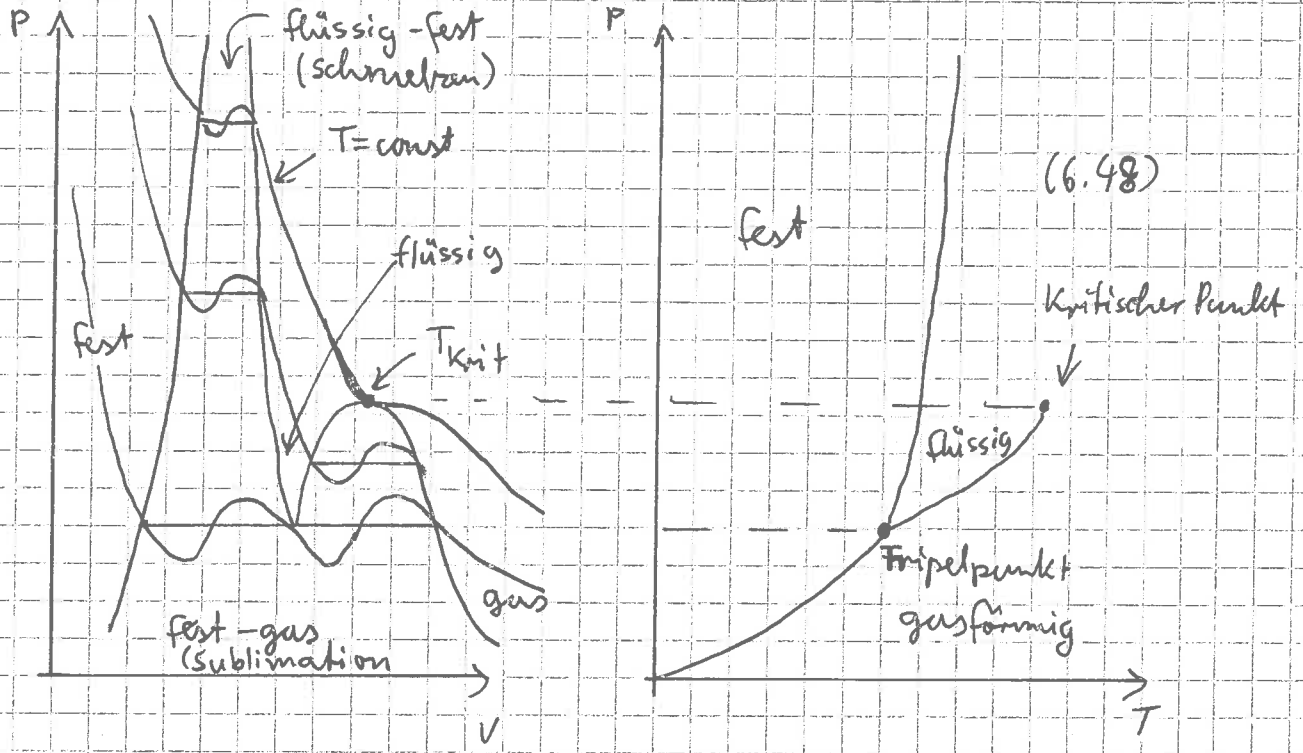 P
flüssig-fest
(schmelzen)
T=const
flüssig
fest
T_Krit
gas
fest-gas
(Sublimation
V
P
(6.48)
fest
Kritischer Punkt
flüssig
Tripelpunkt
gasförmig
T